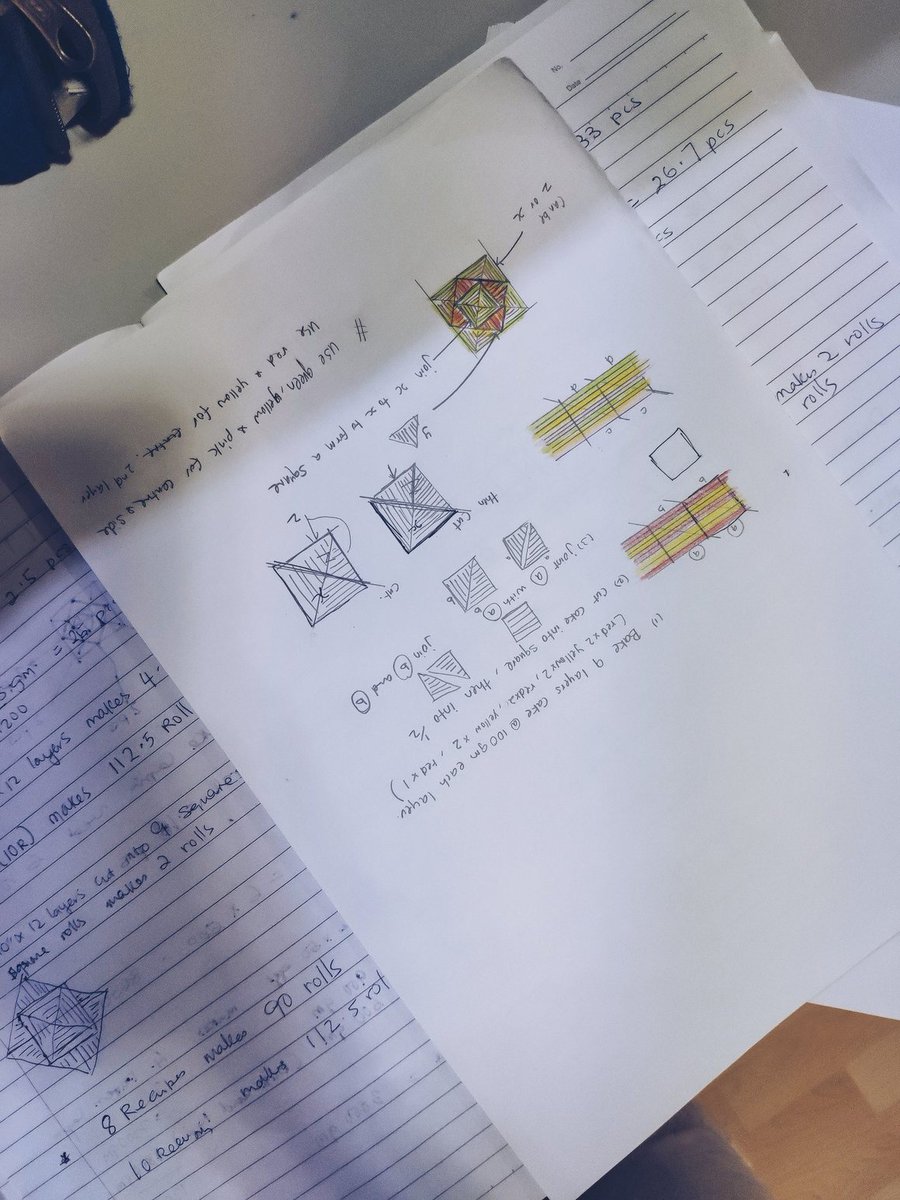 No.
Date
33 pcs
= 26.7 pcs
cs
makes 2 rolls
rolls
(1) Bake 9 layers cake @ 100gm each layer
(red x 2 yellow x 2, red x 2, yellow x 2, red x 1)
(2) cut cake into square, then into 1/2
(3) joint a with a
join b and b
b
b
a
a
d
d
c
c
a
b
x
z
cut
x
then cut
y
join x to x to form a square
can be
z or x
# use green, yellow & pink for centre & side
use red & yellow for centre. 2nd layer
2.5 pcs
1200
x 12 layers makes 4
(10R) makes 112.5 Roll
x 12 layers cut into 9 square
square rolls makes 2 rolls.
* 8 Recipes makes 90 rolls
10 Recipes makes 112.5 rol